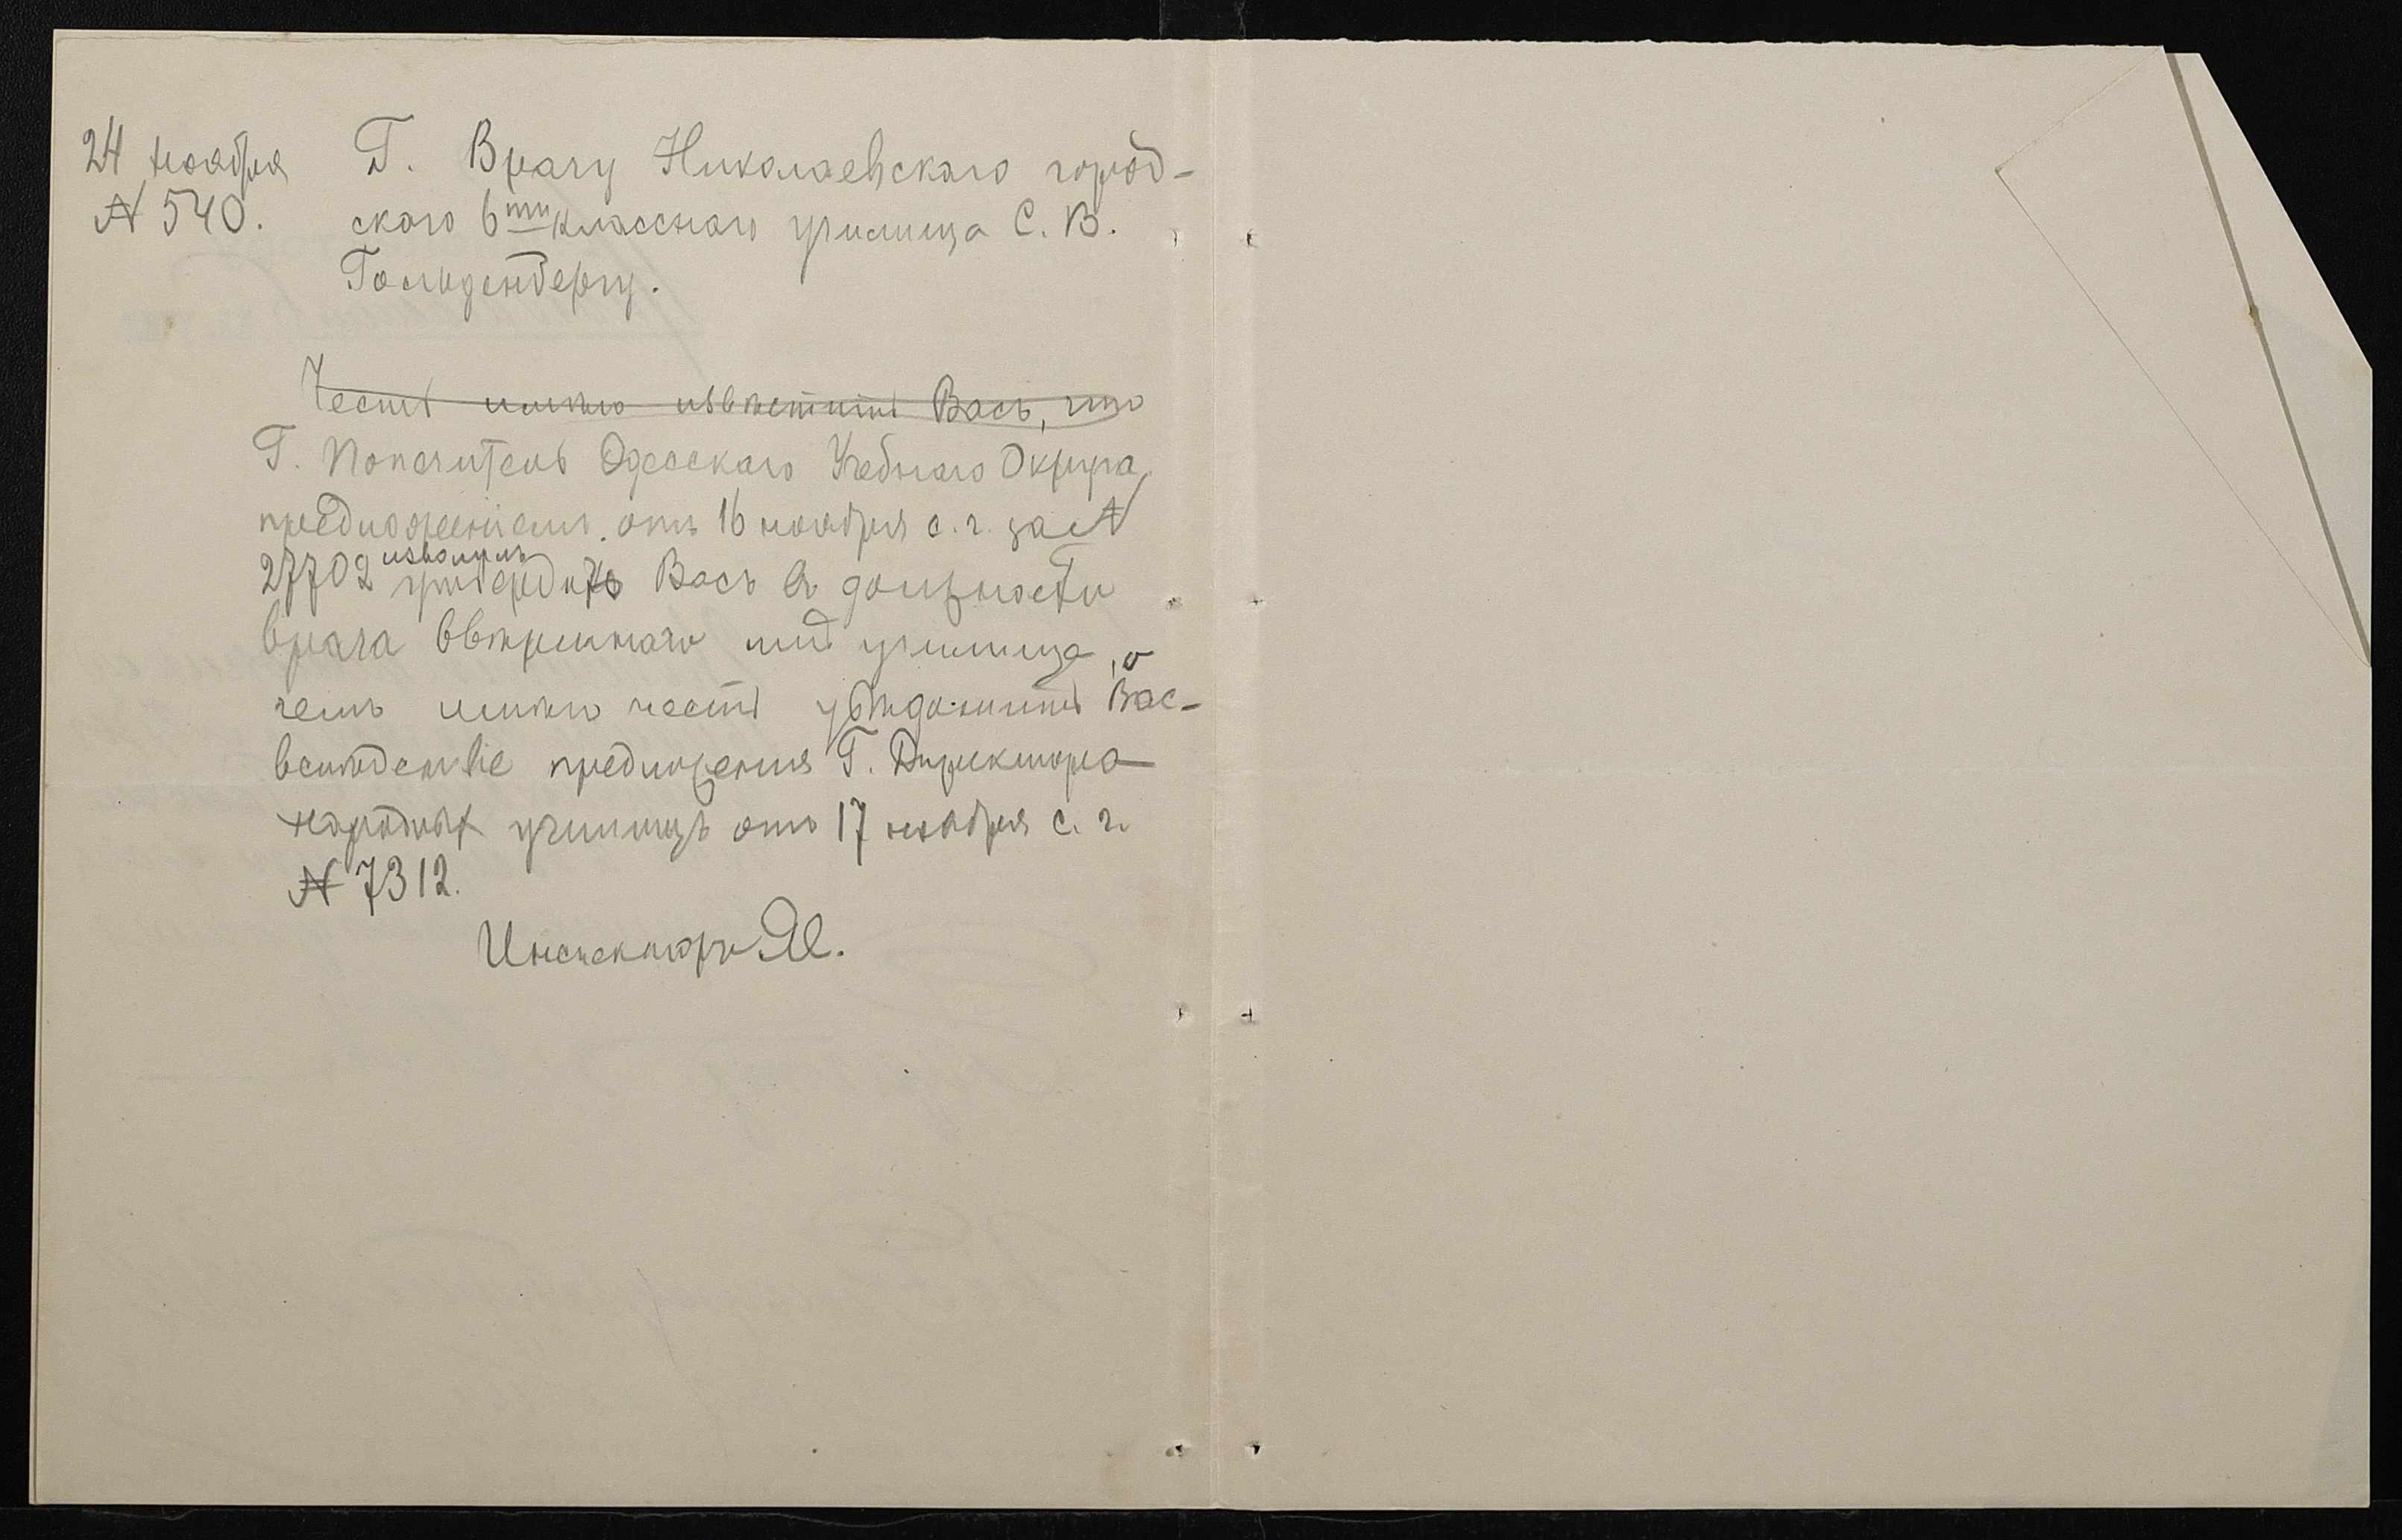 24 ноября
№ 540.
Г. Врачу Николаевскаго город-
ского 6ти классного училища С. В.
Гольденбергу.
Честь имѣю извѣстить Васъ, что
Г. Попечитель Одесскаго Учебнаго Округа
предложеніемъ отъ 16 ноября с. г. за №
27702 изволилъ утвердить Васъ въ должности
врача ввѣреннаго мнѣ училища, о
чемъ имѣю честь увѣдомить Вас-
вслѣдствіе предложения Г. Директора
народных училищъ отъ 17 ноября с. г.
№ 7312.
Инспекторъ